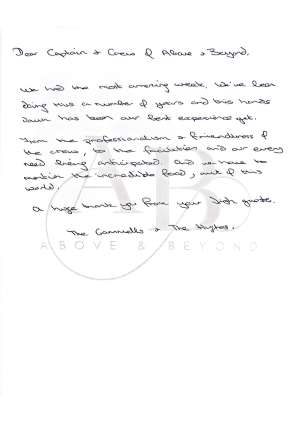 Dear Captain & Crew of Above & Beyond,
We had the most amazing week. We've been
doing this a number of years and this hands
down has been our best experience yet.
From the professionalism & friendliness of
the crew, to the facilities and our every
need being anticipated. And we have to
mention the incredible food, out of this
world.
A huge thank you from your guests.
ABOVE & BEYOND
The & The